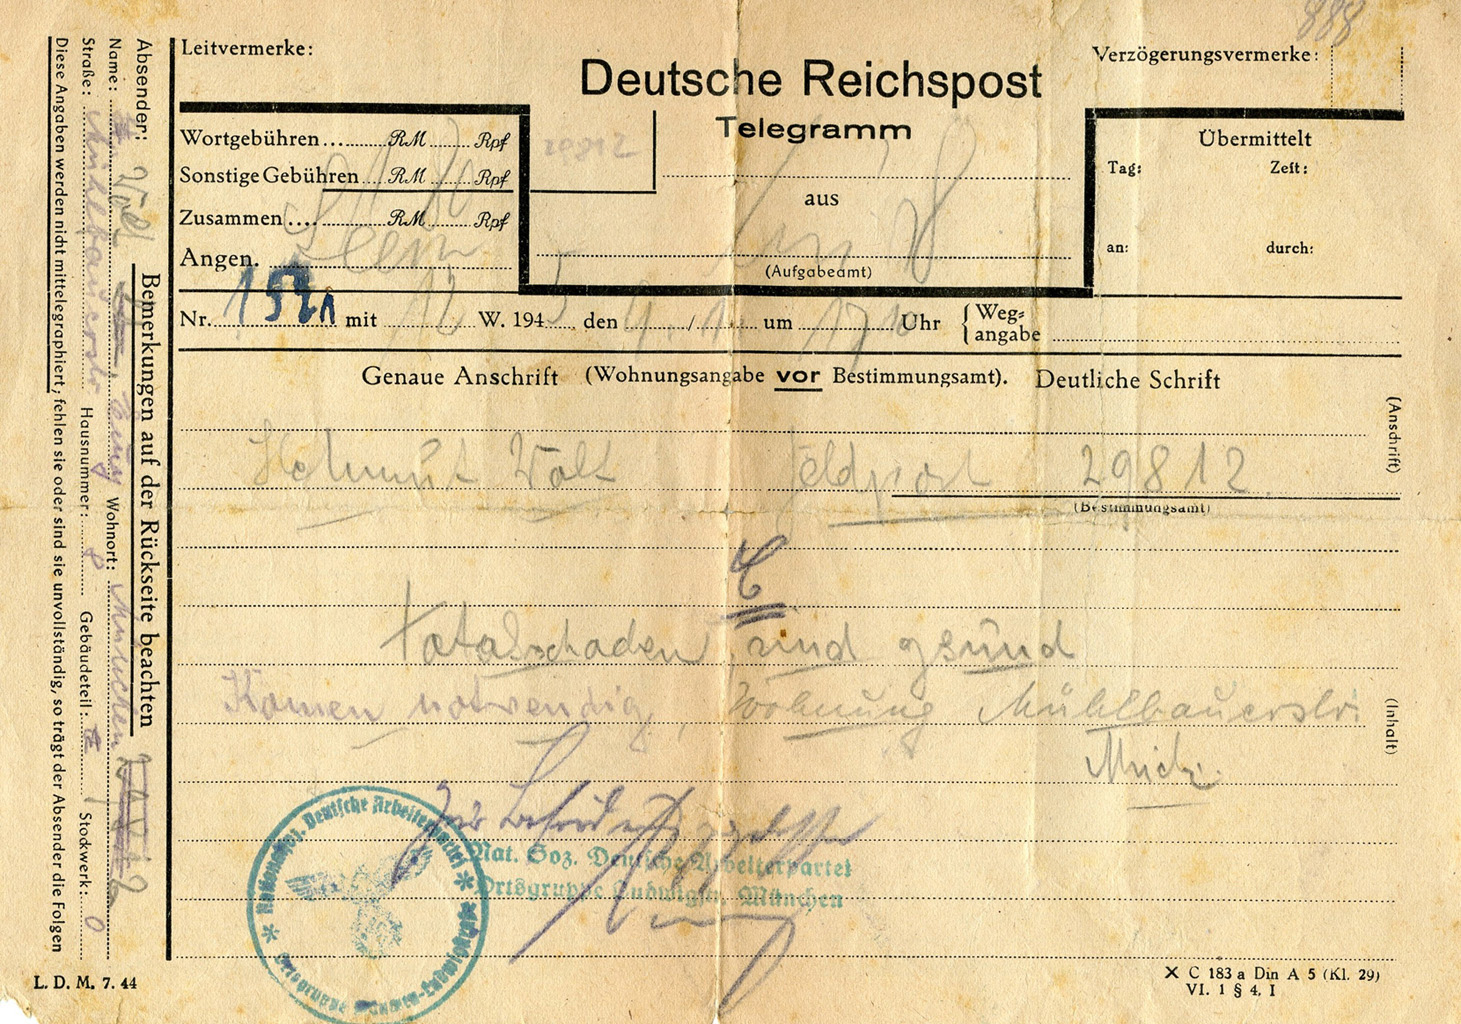 888
Leitvermerke:
Deutsche Reichspost
Verzögerungsvermerke:
Telegramm
Wortgebühren RM Rpf
Sonstige Gebühren RM Rpf
Zusammen RM Rpf
Angen.
aus
(Aufgabeamt)
Übermittelt
Tag: Zeit:
an: durch:
Nr. mit 12 W. 194 5, den 9. 1. um 17 10 Uhr { Weg=
angabe
Genaue Anschrift (Wohnungsangabe vor Bestimmungsamt). Deutliche Schrift
(Anschrift)
Helmut Wolt Feldpost 29812.
(Bestimmungsamt)
Totalschaden, sind gsund
Komen notwendig, Wohnung Mühlbauerstr.
(Inhalt)
Michi
Nationalsoz. Deutsche Arbeiterpartei
Ortsgruppe
Nat. Soz. Deutsche Arbeiterpartei
Ortsgruppe Ludwigstr. München
Bemerkungen auf der Rückseite beachten
Absender:
Name: Wohnort: München
Straße: Mühlbauerstr Hausnummer: 8 Gebäudeteil: Stockwerk: 0
Diese Angaben werden nicht mittelegraphiert; fehlen sie oder sind sie unvollständig, so trägt der Absender die Folgen
L. D. M. 7. 44
X C 183 a Din A 5 (Kl. 29)
VI. 1 § 4, I